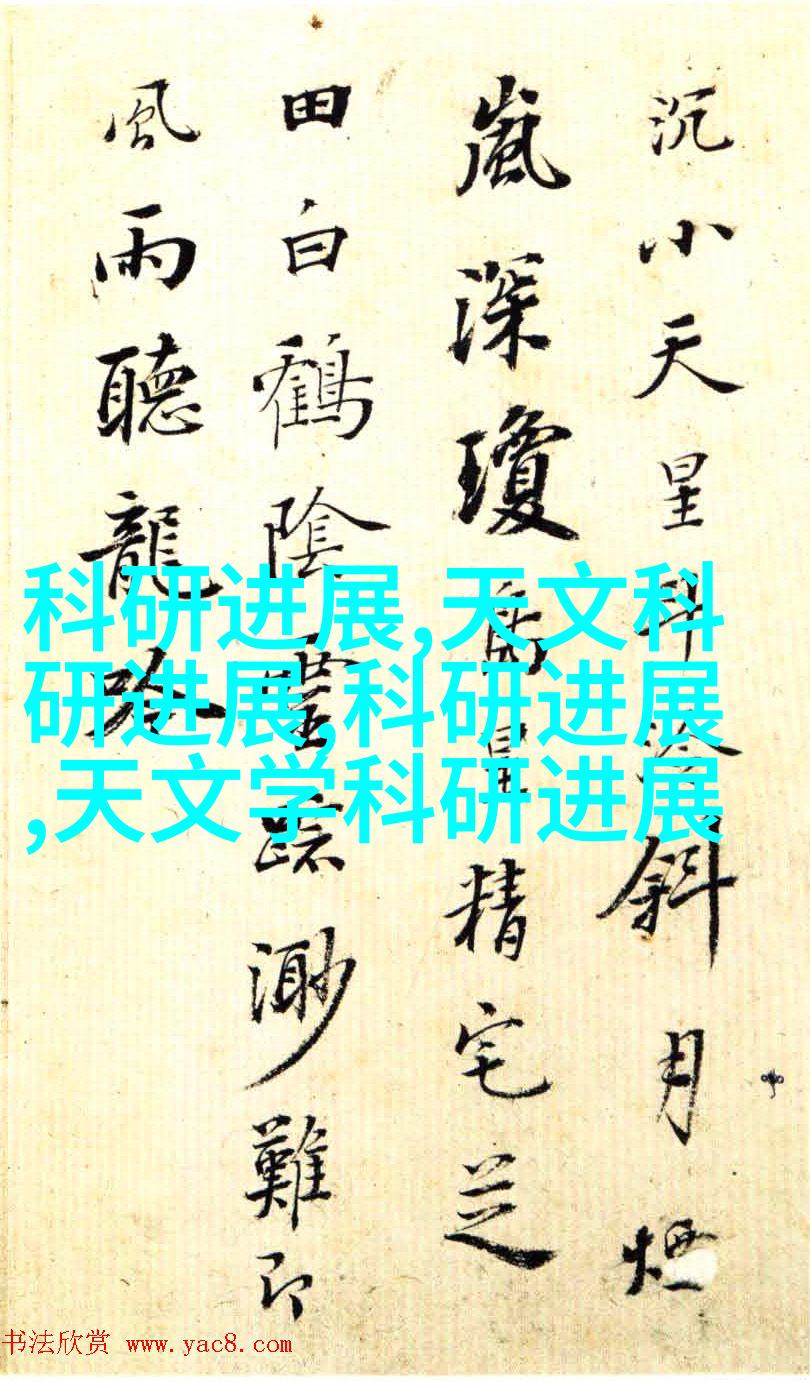 沉小天星斗冷斜月煙
嵐深瓊島精宅芝
田白鶴陰渺難即
風雨聽龍吟
科研进展,天文科
研进展,科研进展
,天文学科研进展
书法欣赏 www.yac8.com